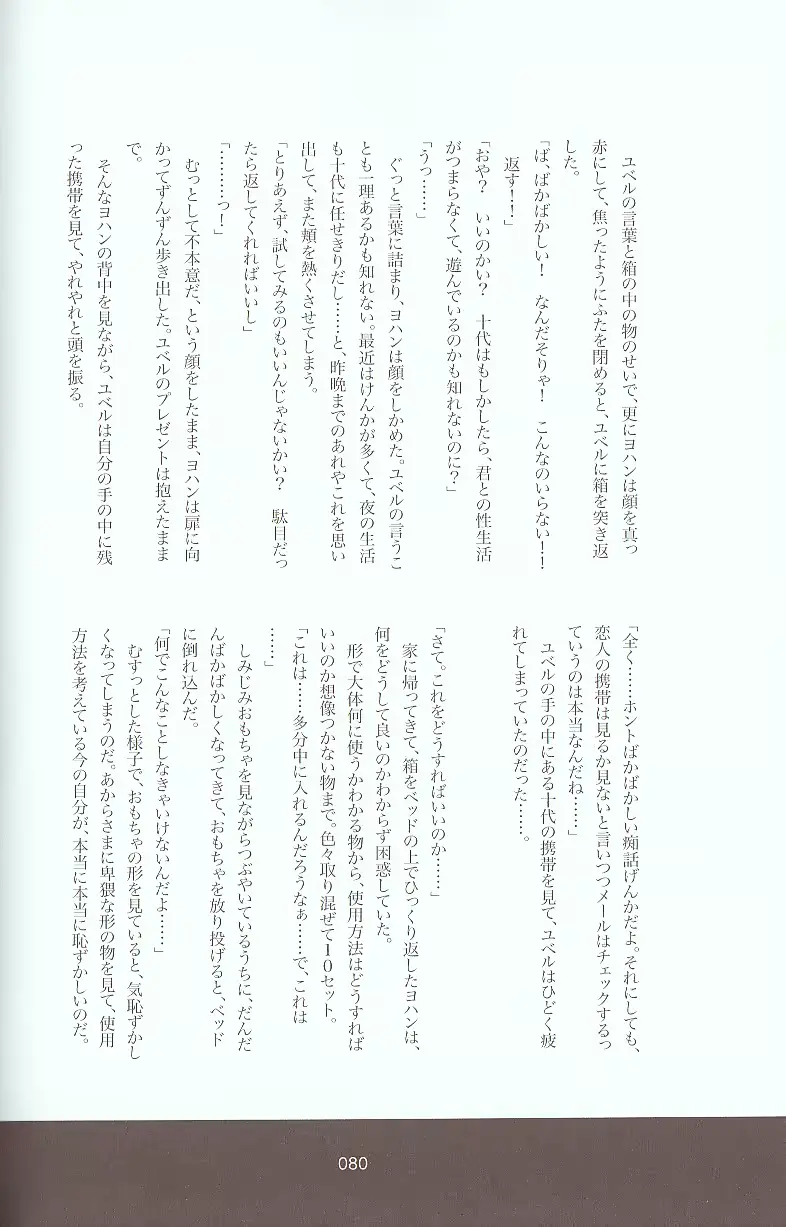 ユベルの言葉と箱の中の物のせいで、更にヨハンは顔を真っ
赤にして、焦ったようにふたを閉めると、ユベルに箱を突き返
した。
「ば、ばかばかしい！　なんだそりゃ！　こんなのいらない！！
　返す！！」
「おや？　いいのかい？　十代はもしかしたら、君との性生活
がつまらなくて、遊んでいるのかも知れないのに？」
「うっ……」
　ぐっと言葉に詰まり、ヨハンは顔をしかめた。ユベルの言うこ
とも一理あるかも知れない。最近はけんかが多くて、夜の生活
も十代に任せきりだし……と、昨晩までのあれやこれを思い
出して、また頬を熱くさせてしまう。
「とりあえず、試してみるのもいいんじゃないかい？　駄目だっ
たら返してくれればいいし」
「………っ！」
　むっとして不本意だ、という顔をしたまま、ヨハンは扉に向
かってずんずん歩き出した。ユベルのプレゼントは抱えたまま
で。
　そんなヨハンの背中を見ながら、ユベルは自分の手の中に残
った携帯を見て、やれやれと頭を振る。
「全く……ホントばかばかしい痴話げんかだよ。それにしても、
恋人の携帯は見るか見ないと言いつつメールはチェックするっ
ていうのは本当なんだね……」
　ユベルの手の中にある十代の携帯を見て、ユベルはひどく疲
れてしまっていたのだった……。
「さて。これをどうすればいいのか……」
　家に帰ってきて、箱をベッドの上でひっくり返したヨハンは、
何をどうして良いのかわからず困惑していた。
　形で大体何に使うかわかる物から、使用方法はどうすれば
いいのか想像つかない物まで。色々取り混ぜて１０セット。
「これは……多分中に入れるんだろうなぁ……で、これは
……」
　しみじみおもちゃを見ながらつぶやいているうちに、だんだ
んばかばかしくなってきて、おもちゃを放り投げると、ベッド
に倒れ込んだ。
「何でこんなことしなきゃいけないんだよ……」
　むすっとした様子で、おもちゃの形を見ていると、気恥ずかし
くなってしまうのだ。あからさまに卑猥な形の物を見て、使用
方法を考えている今の自分が、本当に本当に恥ずかしいのだ。
080